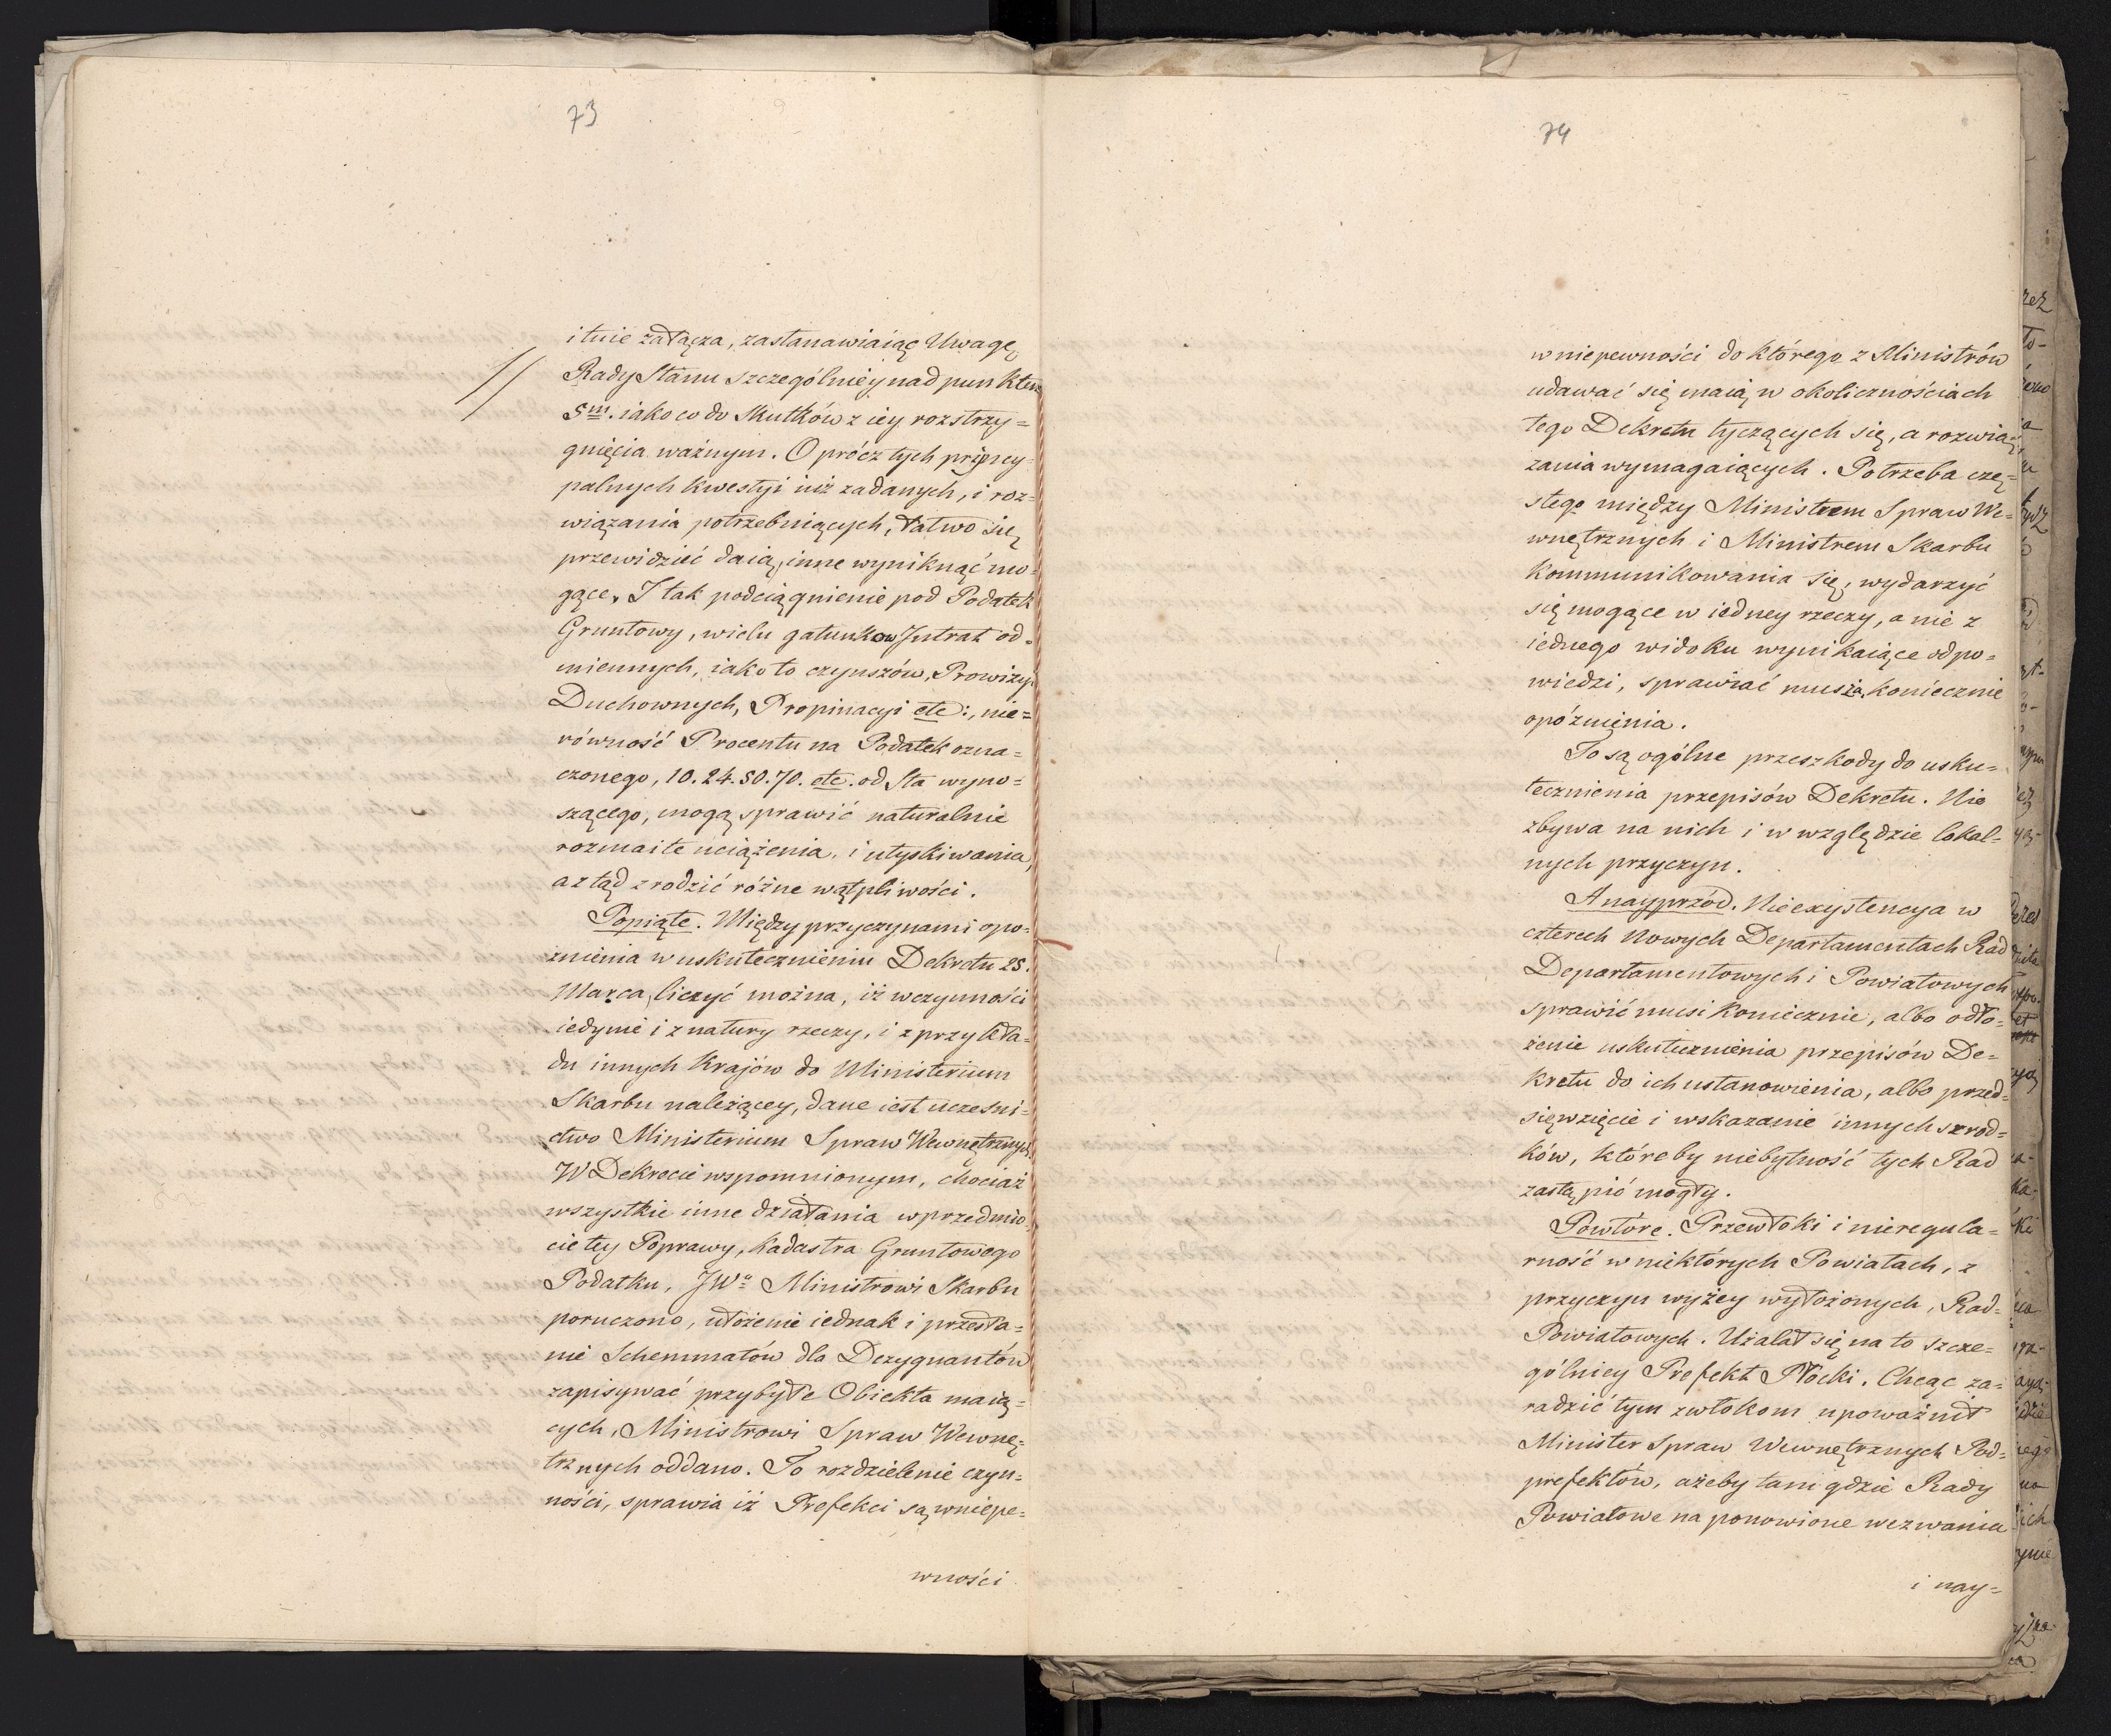 73
i tu ie załącza, zastanawiaiąc Uwagę
Rady Stanu szczególniey nad punktem
5m. iako co do Skutków z iey rozstrzy=
gnięcia ważnym. Oprócz tych pryncy=
palnych kwestyi iuż zadanych, i roz=
wiązania potrzebuiących, łatwo się
przewidzieć daią, inne wyniknąć mo=
gące. I tak podciągnienie pod Podatek
Gruntowy, wielu gatunkow Intrat od=
miennych, iako to czynszów, Prowizyi
Duchownych, Propinacyi etc:, nie=
równość Procentu na Podatek ozna=
czonego, 10. 24. 50. 70. etc. od Sta wyno=
szącego, mogą sprawić naturalnie
rozmaite uciążenia, i utyskiwania,
a ztąd zrodzić różne wątpliwości.
Popiąte. Między przyczynami opo=
znienia w uskutecznieniu Dekretu 25.
Marca, liczyć można, iż w czynności
iedynie i z natury rzeczy, i z przykła=
du innych Krajów do Ministerium
Skarbu należącey, dane iest uczesni=
ctwo Ministerium Spraw Wewnętrznych
W Dekrecie wspomnionym, chociaż
wszystkie inne działania w przedmio=
cie tey Poprawy, Kadastra Gruntowego
Podatku, JWo Ministrowi Skarbu
poruczono, ułożenie iednak i przesła=
nie Schemmatów dla Dezygnantów
zapisywać przybyłe Obiekta maią=
cych, Ministrowi Spraw Wewnę=
trznych oddano. To rozdzielenie czyn=
ności, sprawia iż Prefekci są w niepe=
wności
74
w niepewności do którego z Ministrów
udawać się maią w okolicznościach
tego Dekretu tyczących się, a rozwią=
zania wymagaiących. Potrzeba czę=
stego między Ministrem Spraw We=
wnętrznych i Ministrem Skarbu
Kommunikowania się, wydarzyć
się mogące w iedney rzeczy, a nie z
iednego widoku wynikaiące odpo=
wiedzi, sprawiać muszą koniecznie
opóznienia.
To są ogólne przeszkody do usku=
tecznienia przepisów Dekretu. Nie
zbywa na nich i w względzie lokal=
nych przyczyn.
A nayprzód. Nieexystencya w
czterech Nowych Departamentach Rad
Departamentowych i Powiatowych
sprawić musi koniecznie, albo odło=
żenie uskutecznienia przepisów De=
kretu do ich ustanowienia, albo przed=
sięwzięcie i wskazanie innych szrod=
ków, któreby niebytność tych Rad
zastąpić mogły.
Powtóre. Przewłoki i nieregula=
rność w niektórych Powiatach, z
przyczyn wyżey wyłożonych, Rad=
Powiatowych. Użalał się na to szcze=
gólniey Prefekt Płocki. Chcąc za=
radzić tym zwłokom upoważnił
Minister Spraw Wewnętrznych Pod=
prefektów, ażeby tam gdzie Rady
Powiatowe na ponowione wezwania
i nay=